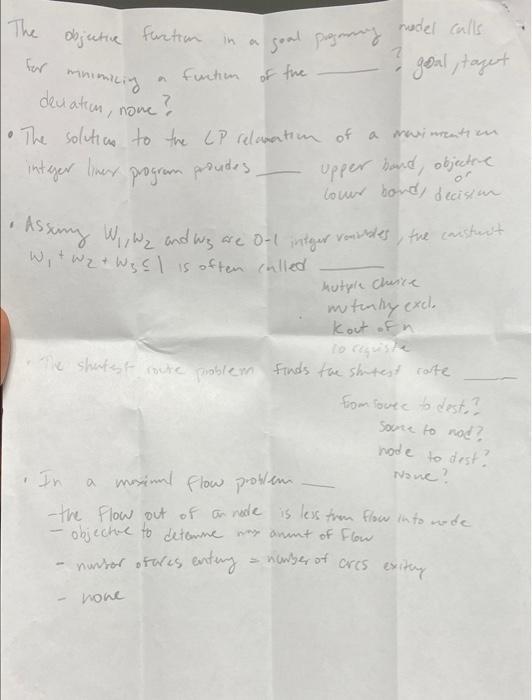 The objective function in a goal programming model calls
for minimizing a function of the ____ ? goal, target
deviation, none?
• The solution to the LP relaxation of a maximization
integer linear program provides ____ upper bound, objective
or
lower bound, decision
• Assuming W1, W2 and W3 are 0-1 integer variables, the constraint
W1 + W2 + W3 ≤ 1 is often called ____
multple choice
mutually excl.
K out of n
corequiste
• The shortest route problem finds the shortest route ____
from source to dest.?
source to nod?
node to dest?
None?
• In a maximal flow problem ____
- the flow out of an node is less than flow into node
- objective to determine max amount of flow
- number of arcs entering = number of arcs exiting
- none